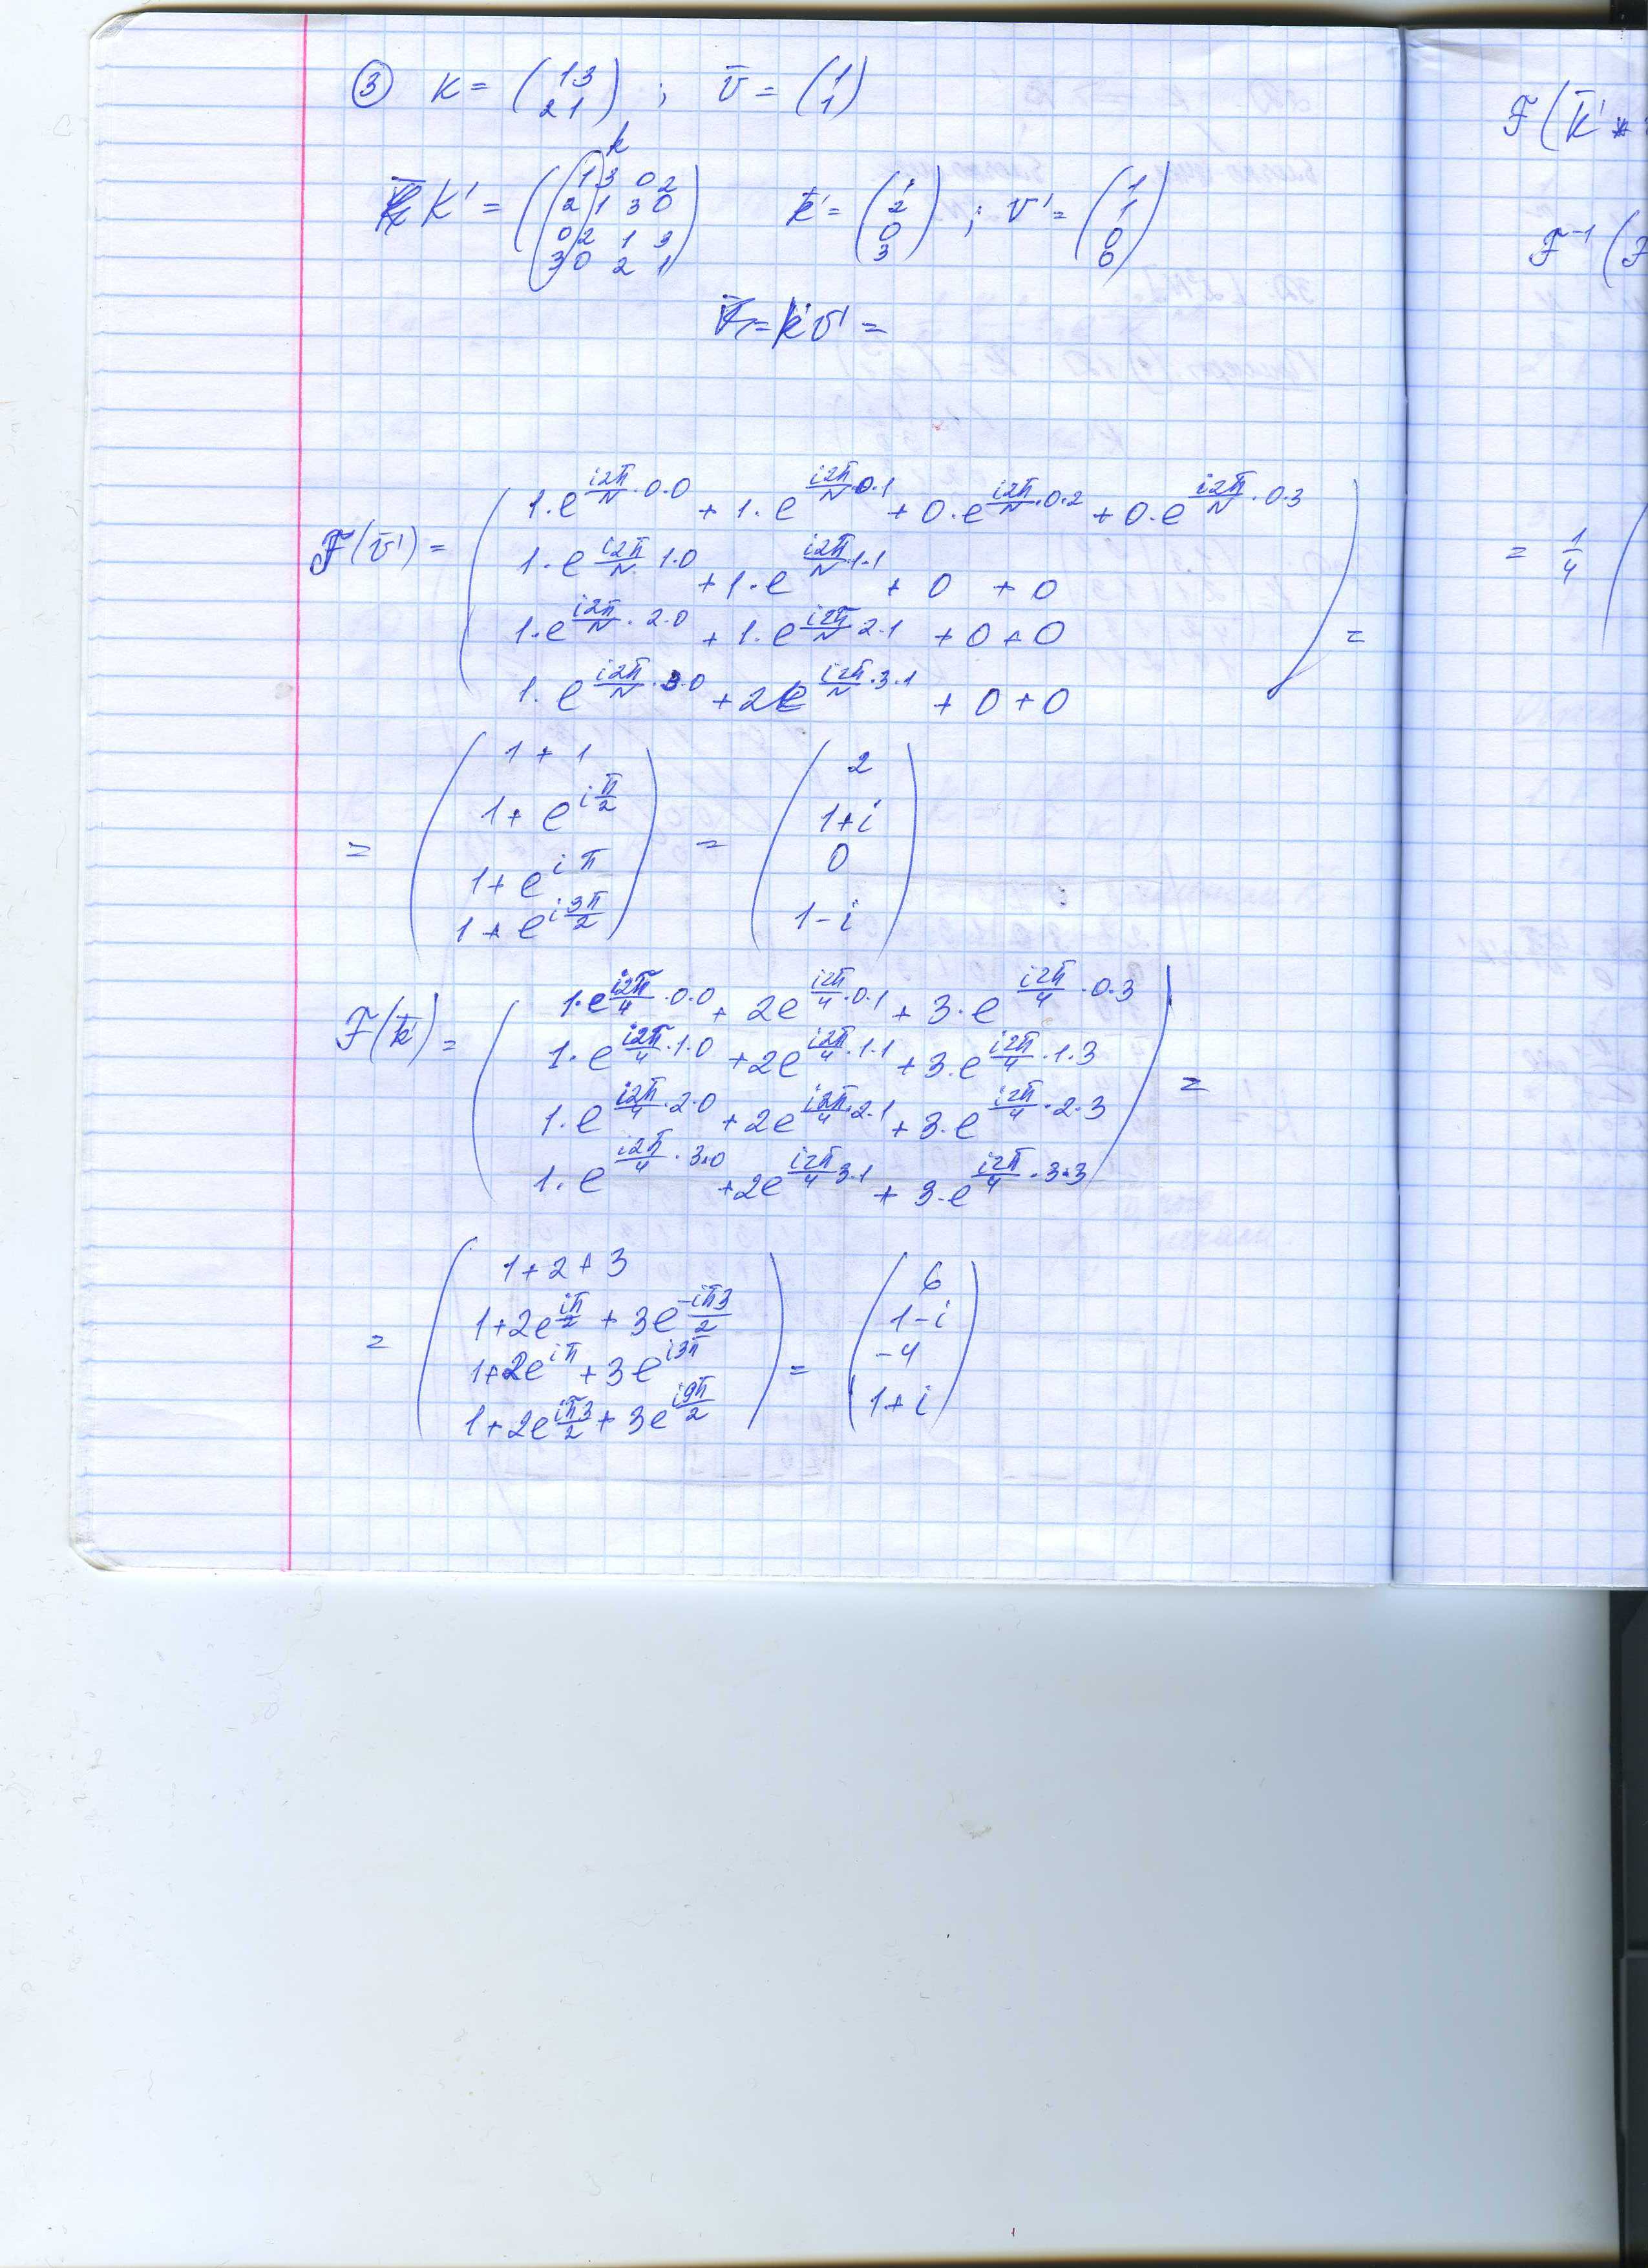 ③ K = (1 3
2 1) ; v̄ = (1
1)
k
K' = (1 3 0 2
2 1 3 0
0 2 1 3
3 0 2 1) k̄' = (1
2
0
3) ; v̄' = (1
1
0
0)
= k̄' v̄' =
F(v̄') = (1·e^{i2π/N·0·0} + 1·e^{i2π/N·0·1} + 0·e^{i2π/N·0·2} + 0·e^{i2π/N·0·3}
1·e^{i2π/N 1·0} + 1·e^{i2π/N 1·1} + 0 + 0
1·e^{i2π/N·2·0} + 1·e^{i2π/N 2·1} + 0 + 0
1·e^{i2π/N·3·0} + 2e^{i2π/N·3·1} + 0 + 0) =
= (1 + 1
1 + e^{iπ/2}
1 + e^{iπ}
1 + e^{i3π/2}) = (2
1+i
0
1-i)
F(k̄') = (1·e^{i2π/4·0·0} + 2e^{i2π/4·0·1} + 3·e^{i2π/4·0·3}
1·e^{i2π/4·1·0} + 2e^{i2π/4·1·1} + 3·e^{i2π/4·1·3}
1·e^{i2π/4·2·0} + 2e^{i2π/4·2·1} + 3·e^{i2π/4·2·3}
1·e^{i2π/4·3·0} + 2e^{i2π/4 3·1} + 3·e^{i2π/4·3·3}) =
= (1+2+3
1+2e^{iπ/2} + 3e^{-iπ3/2}
1+2e^{iπ} + 3e^{i3π}
1+2e^{iπ3/2} + 3e^{i9π/2}) = (6
1-i
-4
1+i)
F(k̄' *
F⁻¹(F
= 1/4 (